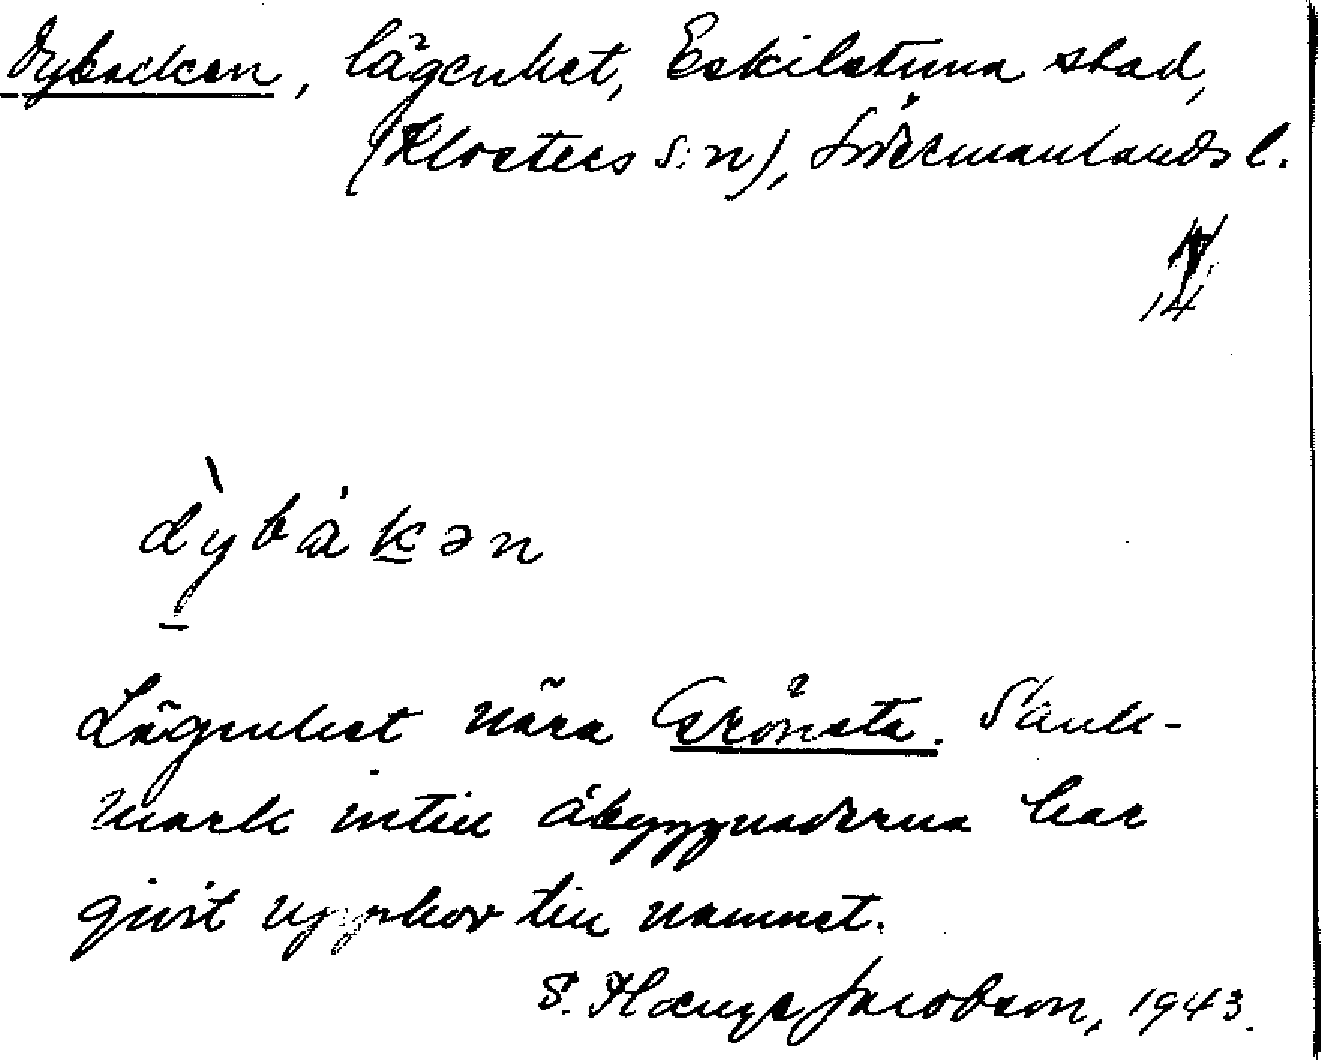 Dybacken, lägenhet, Eskilstuna stad,
(Klosters s:n), Södermanlands l.
14
dybakən
Lägenhet nära Grönsta. Sank-
mark intill åbyggnaderna har
givit upphov till namnet.
S. Jacobson, 1943.